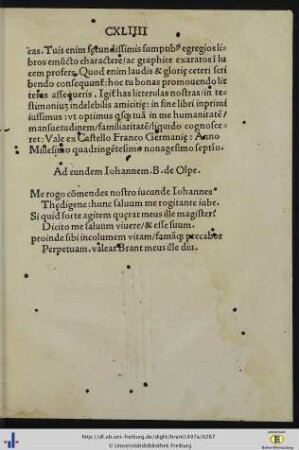 CXLIIII
cas. Tuis enim fecundissimis sumptib⁹ egregios li
bros emūcto charactere/ac graphice exaratos ī lu
cem profers. Quod enim laudis & glorię ceteri scri
bendo consequunt᷑: hoc tu bonas promouendo lit
teras assequeris. Igit᷑ has litterulas nostras/in te
stimoniū indelebilis amicitię: in fine libri inprimi
iussimus: vt optimus qsq̨ tuā in me humanitatē/
mansuetudinem/familiaritatē/liquido cognosce
ret: Vale ex Castello Franco Germanię: Anno
Millesimo quadringētesimo nonagesimo septīo.
Ad eundem Iohannem.B.de Olpe.
Me rogo cōmendes nostro iucunde Iohannes
Thędigene: hunc saluum me rogitante iube.
Si quid forte agitem quęrat meus ille magister:
Dicito me saluum viuere/& esse suum.
proinde sibi incolumem vitam/famāq̨ precabor
Perpetuam. valeat Brant meus ille diu.
http://dl.ub.uni-freiburg.de/diglit/brant1497a/0287
© Universitätsbibliothek Freiburg